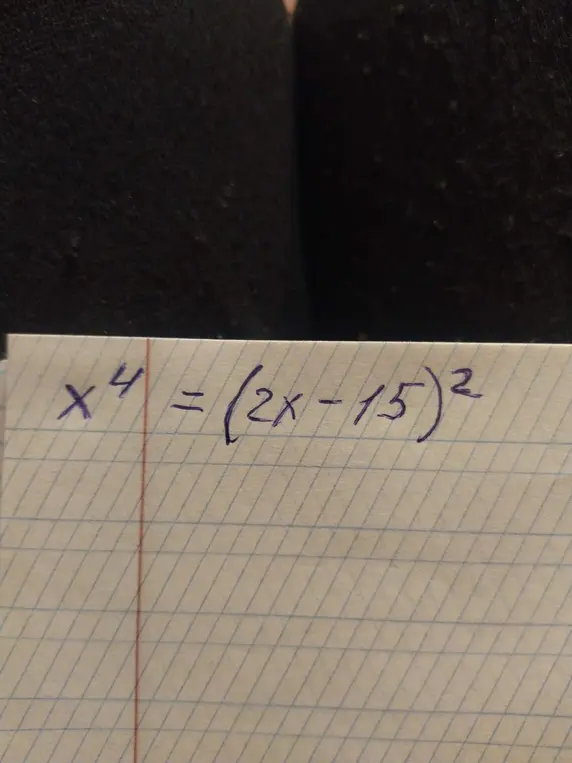 x⁴ = (2x - 15)²